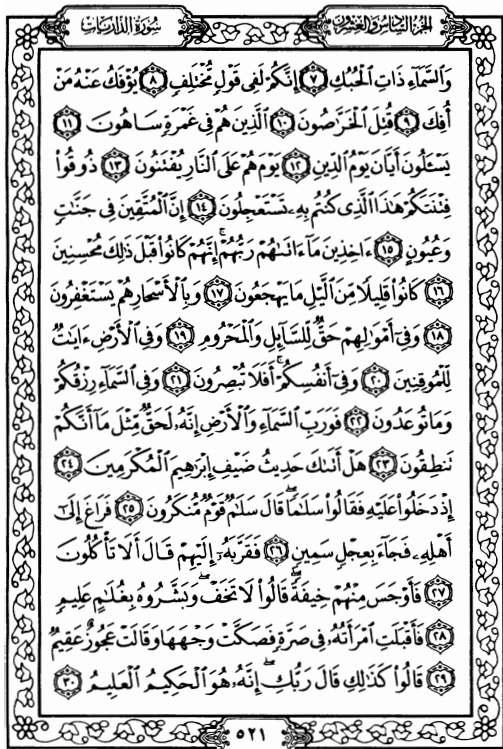 الجزء السادس والعشرون
سورة الذاريات
وَالسَّمَاءِ ذَاتِ الْحُبُكِ ٧ إِنَّكُمْ لَفِي قَوْلٍ مُّخْتَلِفٍ ٨ يُؤْفَكُ عَنْهُ مَنْ
أُفِكَ ٩ قُتِلَ الْخَرَّاصُونَ ١٠ الَّذِينَ هُمْ فِي غَمْرَةٍ سَاهُونَ ١١
يَسْـَٔلُونَ أَيَّانَ يَوْمُ الدِّينِ ١٢ يَوْمَ هُمْ عَلَى النَّارِ يُفْتَنُونَ ١٣ ذُوقُوا۟
فِتْنَتَكُمْ هَٰذَا الَّذِي كُنتُم بِهِۦ تَسْتَعْجِلُونَ ١٤ إِنَّ الْمُتَّقِينَ فِي جَنَّٰتٍ
وَعُيُونٍ ١٥ ءَاخِذِينَ مَآ ءَاتَىٰهُمْ رَبُّهُمْ ۚ إِنَّهُمْ كَانُوا۟ قَبْلَ ذَٰلِكَ مُحْسِنِينَ
١٦ كَانُوا۟ قَلِيلًا مِّنَ الَّيْلِ مَا يَهْجَعُونَ ١٧ وَبِالْأَسْحَارِ هُمْ يَسْتَغْفِرُونَ
١٨ وَفِيٓ أَمْوَٰلِهِمْ حَقٌّ لِّلسَّآئِلِ وَالْمَحْرُومِ ١٩ وَفِي الْأَرْضِ ءَايَٰتٌ
لِّلْمُوقِنِينَ ٢٠ وَفِيٓ أَنفُسِكُمْ ۚ أَفَلَا تُبْصِرُونَ ٢١ وَفِي السَّمَآءِ رِزْقُكُمْ
وَمَا تُوعَدُونَ ٢٢ فَوَرَبِّ السَّمَآءِ وَالْأَرْضِ إِنَّهُۥ لَحَقٌّ مِّثْلَ مَآ أَنَّكُمْ
تَنطِقُونَ ٢٣ هَلْ أَتَىٰكَ حَدِيثُ ضَيْفِ إِبْرَٰهِيمَ الْمُكْرَمِينَ ٢٤
إِذْ دَخَلُوا۟ عَلَيْهِ فَقَالُوا۟ سَلَٰمًا ۖ قَالَ سَلَٰمٌ قَوْمٌ مُّنكَرُونَ ٢٥ فَرَاغَ إِلَىٰٓ
أَهْلِهِۦ فَجَآءَ بِعِجْلٍ سَمِينٍ ٢٦ فَقَرَّبَهُۥٓ إِلَيْهِمْ قَالَ أَلَا تَأْكُلُونَ
٢٧ فَأَوْجَسَ مِنْهُمْ خِيفَةً ۖ قَالُوا۟ لَا تَخَفْ ۖ وَبَشَّرُوهُ بِغُلَٰمٍ عَلِيمٍ
٢٨ فَأَقْبَلَتِ امْرَأَتُهُۥ فِي صَرَّةٍ فَصَكَّتْ وَجْهَهَا وَقَالَتْ عَجُوزٌ عَقِيمٌ
٢٩ قَالُوا۟ كَذَٰلِكِ قَالَ رَبُّكِ ۖ إِنَّهُۥ هُوَ الْحَكِيمُ الْعَلِيمُ ٣٠
٥٢١